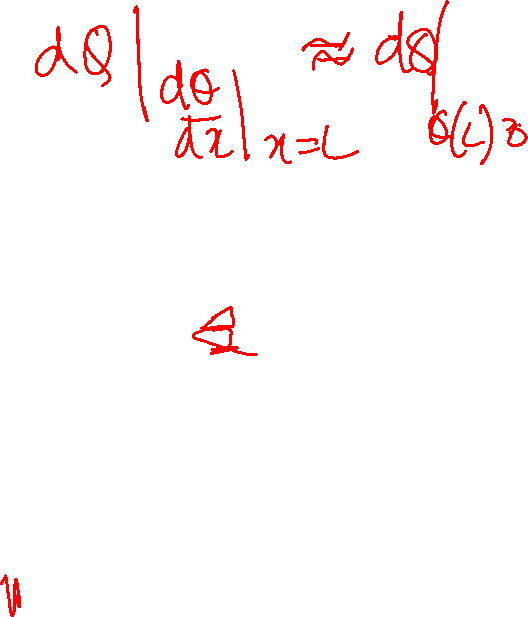 dQ | dθ/dx | x=L ≈ dQ | θ(L)